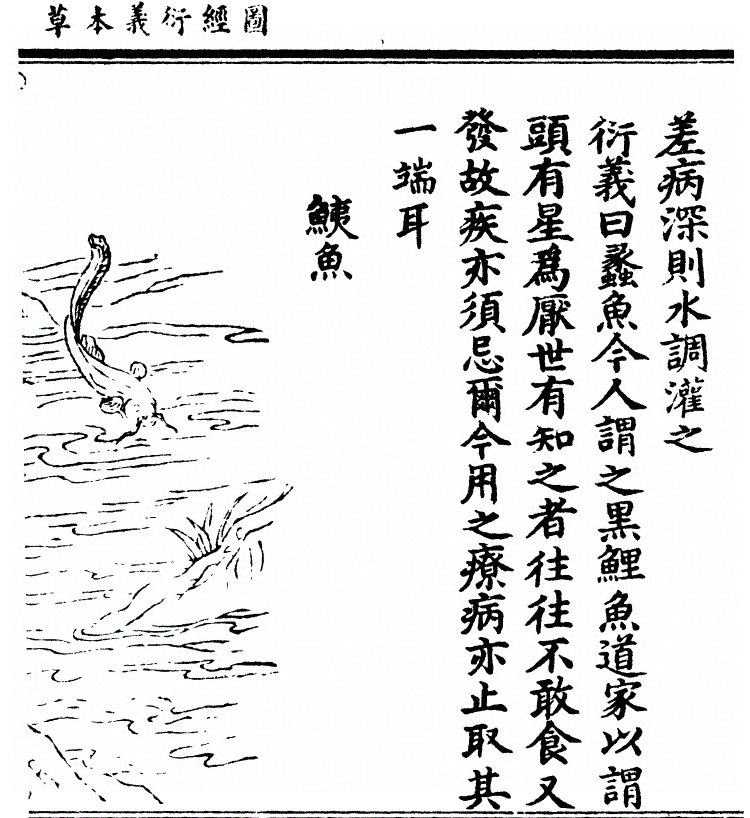 圖經衍義本草
差病深則水調灌之
衍義曰蠡魚今人謂之黑鯉魚道家以謂
頭有星爲厭世有知之者往往不敢食又
發故疾亦須忌爾今用之療病亦止取其
一端耳
鮧魚